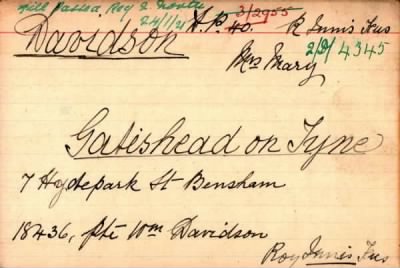 Till Passed Reg 2
24/1/21 A.P. 40. 3/2955 R Innis Fus
Davidson 2/D/4345
Mrs Mary
Gatishead on Tyne
7 Hydepark St Bensham
18436, Pte Wm Davidson
Roy Innis Fus